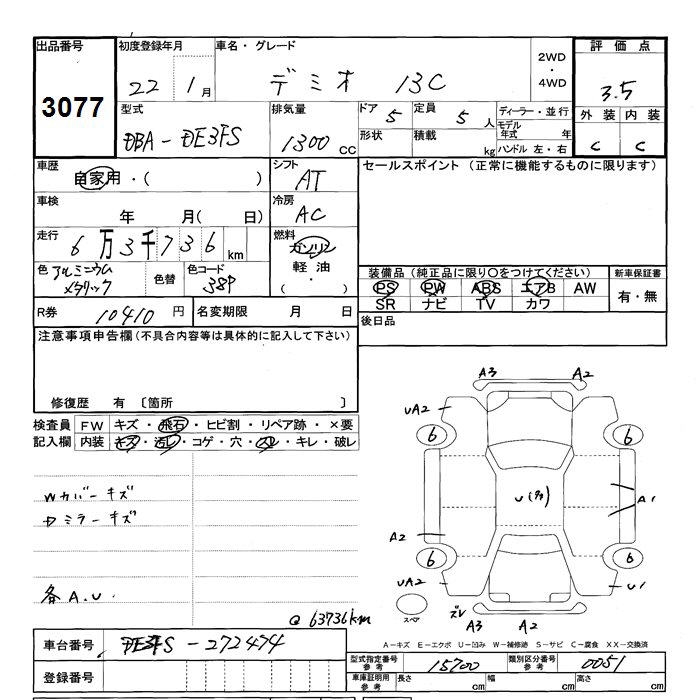 出品番号 初度登録年月 車名・グレード 評価点
3077 22 1月 デミオ 13C 2WD・4WD 3.5
型式 排気量 ドア 5 定員 5人 ディーラー・並行 外装 内装
DBA-DE3FS 1300cc 形状 積載 kg モデル年式 年 C C
ハンドル 左・右
車歴 シフト セールスポイント (正常に機能するものに限ります)
自家用・( ) AT
車検 冷房
年 月( 日) AC
走行 燃料
6万3千736km ガソリン
軽油
( ・ )
色 アルミニウムメタリック 色替 色コード 38P
装備品(純正品に限り○をつけてください) 新車保証書
PS PW ABS エアB AW 有・無
SR ナビ TV カワ
R券 10410円 名変期限 月 日 後日品
注意事項申告欄(不具合内容等は具体的に記入して下さい)
修復歴 有 〔箇所 〕
検査員 FW キズ・飛石・ヒビ割・リペア跡・×要
記入欄 内装 キズ・汚レ・コゲ・穴・スレ・キレ・破レ
A3 A2
UA2
6 6
U(多)
A1
A2
6 6
UA2 U1
スペア
A3 A2
Wカバーキズ
Dミラーキズ
各A.U.
@63736km
A-キズ E-エクボ U-凹み W-補修跡 S-サビ C-腐食 XX-交換済
車台番号 DE3FS-272474
登録番号
型式指定番号 参考 15700 類別区分番号 参考 0051
車庫証明用 参考 長さ cm 幅 cm 高さ cm